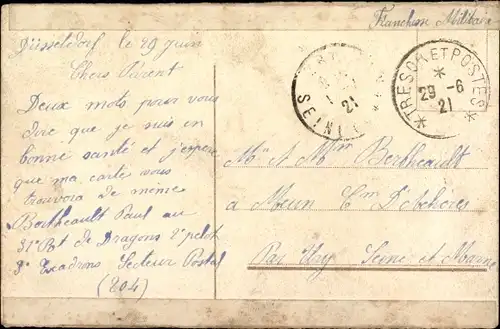 Franchise Militaire
Düsseldorf le 29 Juin
Chers Parent
Deux mots pour vous
dire que je suis en
bonne santé et j'espère
que ma carte vous
trouvera de même
Bertheault Paul au
31e Rt de Dragons 2e pelt
3e Escadrons Secteur Postal
(204)
* TRESOR ET POSTES *
*
29 -6
21
21
Mr et Mme Bertheault
a Meun Cm D'Achères
Par Ury Seine et Marne